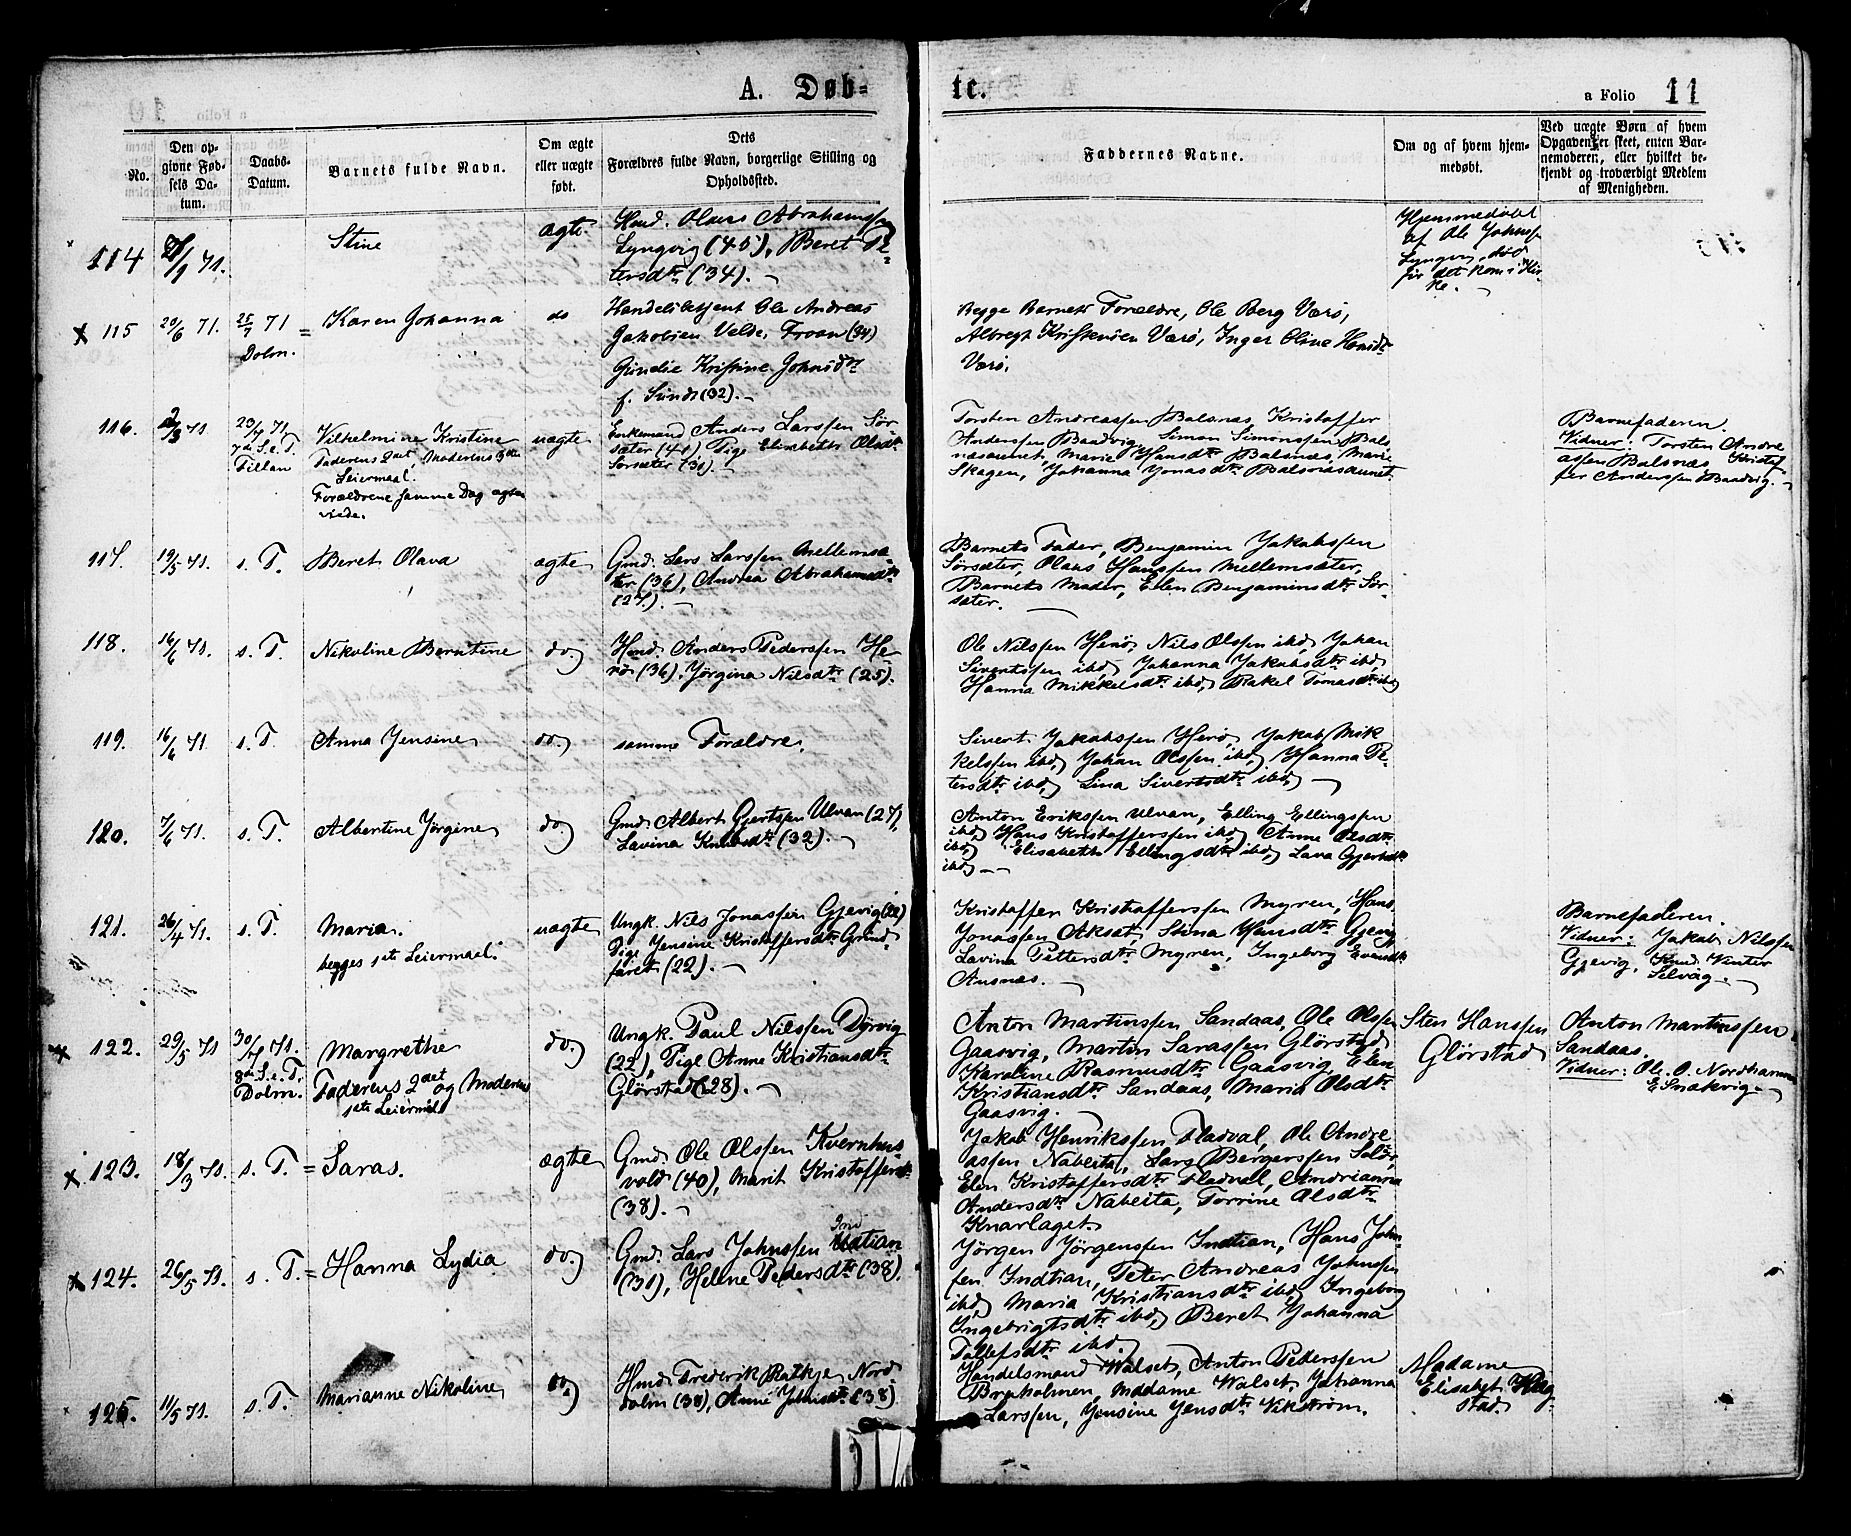 A. Døb=
te.
a Folio 11
No.
Den op-
givne Fød-
sels Da-
tum.
Daabs-
Datum.
Barnets fulde Navn.
Om ægte
eller uægte
født.
Dets
Forældres fulde Navn, borgerlige Stilling og
Opholdssted.
Faddernes Navne.
Om og af hvem hjem-
medøbt.
Ved uægte Børn af hvem
Opgaven er skeet, enten Bar-
nemoderen, eller hvilket be-
kjendt og troværdigt Medlem
af Menigheden.
114
/1 71.
Stine
ægte
Hmd. Olaus Abrahamssen
Lyngvig (45), Beret Pe-
tersdtr (34).
Hjemmedøbt
af Ole Johnss.
Lyngv. død
før det kom i Kir-
ke.
x 115
20/6 71.
25/7 71
Dolm.
= Karen Johanna
do
Handelsbetjent Ole Andreas
Jakobsen Velde, Froan (34)
Gundie Kristine Johnsdtr
f. Sund (32).
Begge Barnets Forældre, Ole Berg Værø,
Albregt Kristensen Værø, Inger Oline Hansdtr
Værø.
116.
2/3 71
23/7 71
7de S. e. T.
Fillan
Vilhelmine Kristine
Faderens 2det, Moderens 3die
Leiermaal.
Forældrene samme Dag ægte-
viede.
uægte
Enkemand Anders Larssen Sør-
sæter (41), Pige Elisabeth Olsdtr
Sørsæter (31).
Torsten Andreassen Balsnæs, Kristoffer
Anderssen Baadvig, Simon Simonssen Bals-
næsaunet, Marie Hansdtr Balsnæs, Marie
Skagen, Johanna Jonasdtr Balsnæsaunet
Barnefaderen.
Vidner: Torsten Andre-
assen Balsnæs, Kristof-
fer Anderssen Baadvig.
117.
19/5 71.
s. T.
Beret Olava
ægte
Gmd. Lars Larssen Mellemsæ-
ter (36), Andrea Abrahamsdtr
(27).
Barnets Fader, Benjamin Jakobssen
Sørsæter, Olaus Hanssen Mellemsæter,
Barnets Moder, Elen Benjaminsdtr Sør-
sæter.
118.
16/6 71.
s. T.
Nikoline Berntine
do.
Hmd. Anders Pederssen He-
rø (36), Jørgina Nilsdtr (25).
Ole Nilssen Herø, Nils Olssen ibd, Johan
Sivertssen ibd, Johanna Jakobsdtr ibd,
Hanna Mikkelsdtr ibd, Rakel Tomasdtr ibd
119.
16/6 71.
s. T.
Anna Jensine
do.
samme Forældre.
Sivert Jakobssen Herø, Jakob Mik-
kelssen ibd, Johan Olssen ibd, Hanna Pe-
tersdtr ibd, Lina Sivertsdtr ibd,
120.
7/6 71.
s. T.
Albertine Jørgine
do.
Gmd. Albert Gjertssen Ulvan (27),
Lavina Knudsdtr (32).
Anton Erikssen Ulvan, Elling Ellingssen
ibd, Hans Kristofferssen ibd, Anne Olsdtr
ibd, Elisabeth Ellingsdtr ibd, Lava Gjertsdtr
ibd
121.
26/4 71.
s. T.
Maria.
begges 1ste Leiermaal.
uægte
Ungk. Nils Jonassen Gjevig (22)
Pige Jensine Kristoffersdtr Grind-
faret (22).
Kristoffer Kristofferssen Myren, Hans
Jonassen Akset, Stina Hansdtr Gjevig
Lavina Pettersdtr Myren, Ingeborg Evensdtr
Ansnæs.
Barnefaderen.
Vidner: Jakob Nilssen
Gjevig, Knud Vinter
Selvåg.
x 122.
29/5 71
30/7 71.
8de S. e. T.
Dolm.
Margrethe
Faderens 2det og Moderens
1ste Leiermål
do.
Ungk. Paul Nilssen Dyrvig
(22), Pige Anne Kristiansdtr
Glørstad (28).
Anton Martinssen Sandaas, Ole Olssen
Gaasvig, Martin Larassen Glørstad,
Karoline Rasmusdtr Gaasvig, Elen
Kristiansdtr Sandaas, Maria Olsdtr
Gaasvig.
Sten Hanssen
Glørstad
Anton Martinssen
Sandaas.
Vidner: Ole O. Nordhammer
E Snækvig
x 123.
18/3 71.
s. T.
= Saras.
ægte
Gmd. Ole Olssen Kvernhus-
vold (40), Marit Kristoffersdtr
(38).
Jakob Henrikssen Fladval, Ole Andre-
assen Nabeita, Lars Bergerssen Solø,
Elen Kristoffersdtr Fladval, Andrianna
Andersdtr Nabeita, Torrine Olsdtr
Knarlaget.
x 124.
26/5 71.
s. T.
= Hanna Lydia
do.
Gmd. Lars Johnssen Indtian
(31), Helene Pedersdtr (38).
Jørgen Jørgenssen Indtian, Hans John-
sen Indtian, Peter Andreas Johnssen
ibd, Maria Kristiansdtr ibd, Ingeborg
Ingebrigtsdtr ibd, Beret Johanna
Tollefsdtr ibd.
125.
11/5 71.
s. T.
Marianne Nikoline
do.
Hmd. Frederik Ratkje Nord-
dolm (38), Anne Johnsdtr (38)
Handelsmand Walset, Anton Pederssen
Brykolmen, Madame Walset, Johanna
Larssen, Jensine Jensdtr Vikstrøm.
Madame
Elisabet Hag-
stad.